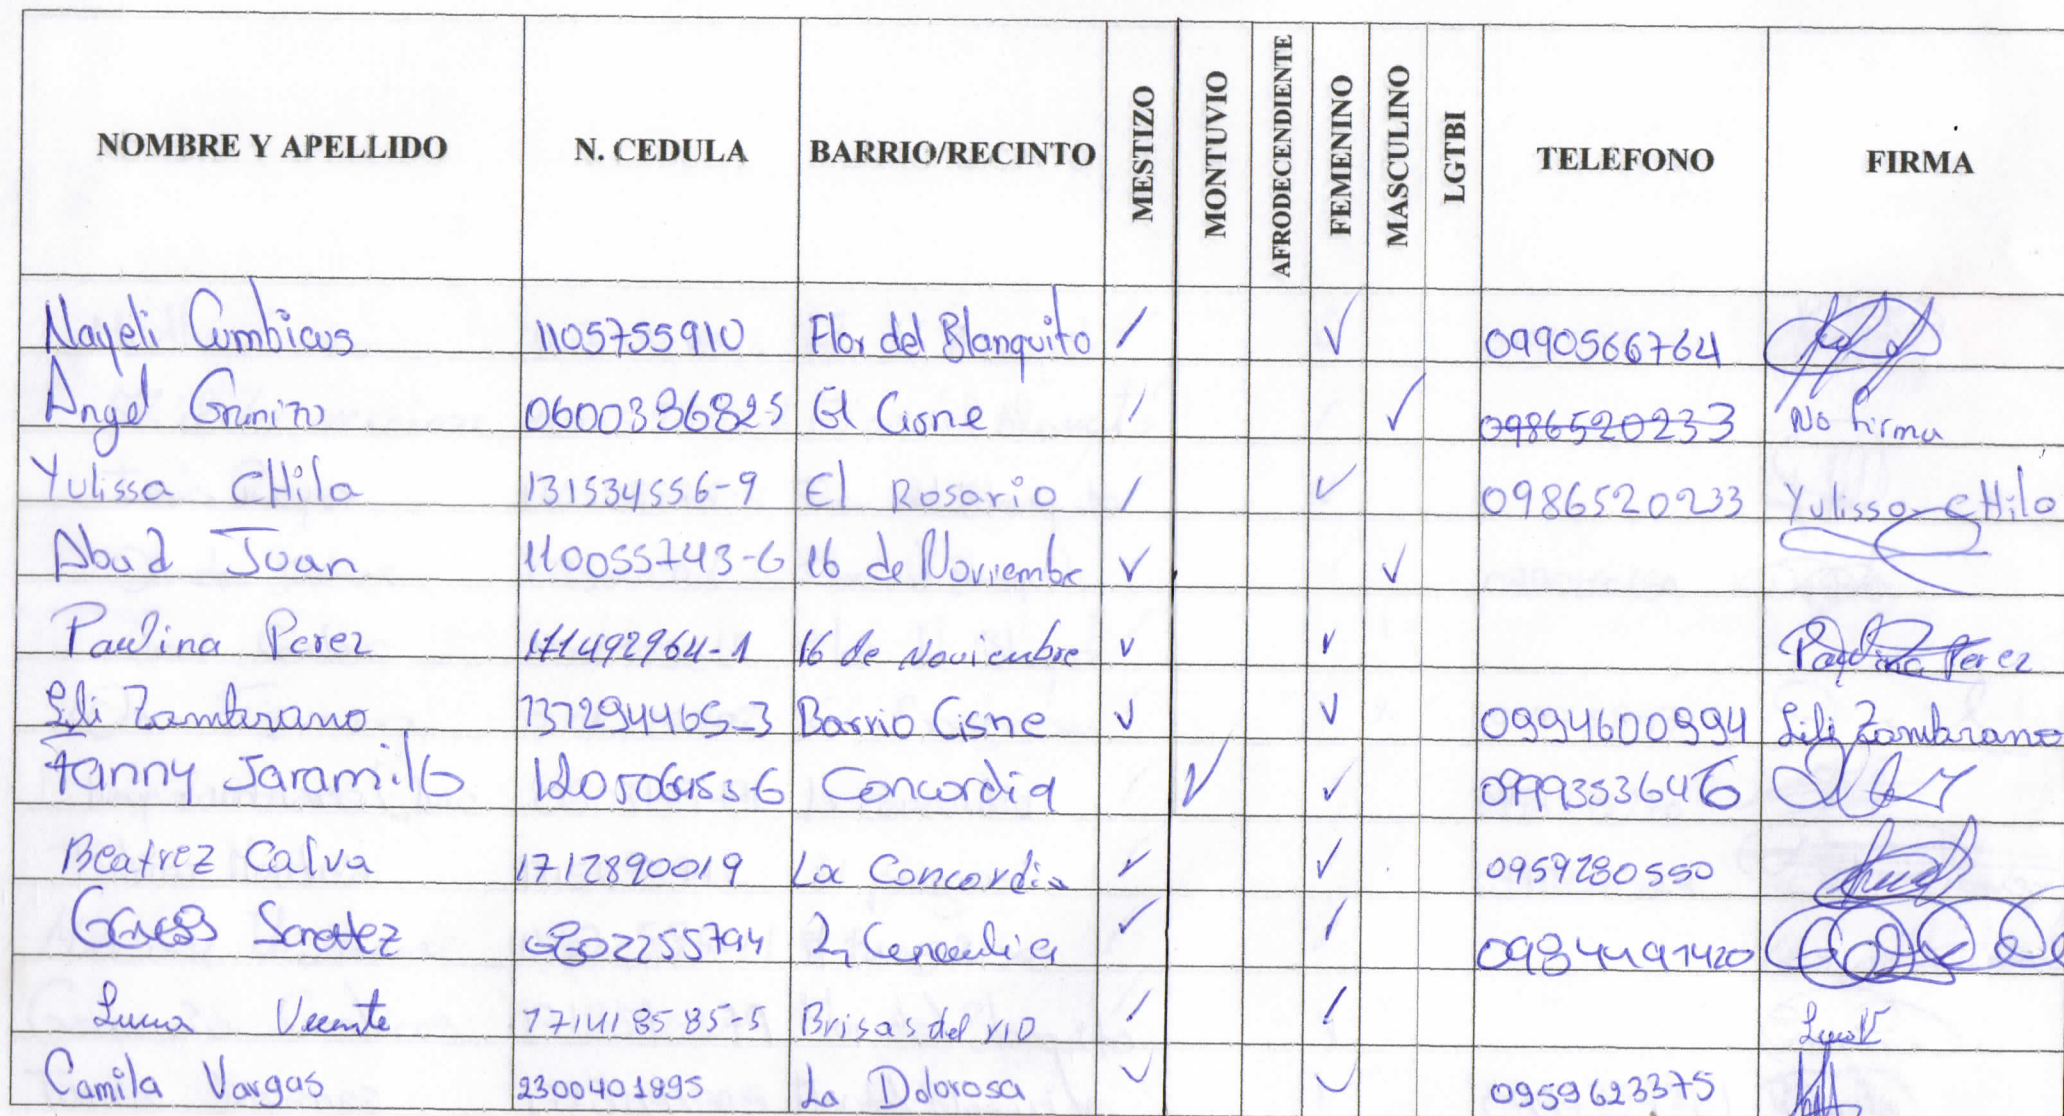 NOMBRE Y APELLIDO N. CEDULA BARRIO/RECINTO MESTIZO MONTUVIO AFRODECENDIENTE FEMENINO MASCULINO LGTBI TELEFONO FIRMA
Nayeli Cumbicus 1105755910 Flor del Blanquito / ✓ 0990566764
Angel 0600386825 El Cisne / ✓ 0986520233 No firma
Yulissa CHila 131534556-9 El Rosario / ✓ 0986520233 Yulissa CHila
Abad Juan 110055743-6 16 de Noviembre ✓ ✓
Paulina Perez 171492964-1 16 de Noviembre ✓ ✓ Paulina Perez
Lili Zambrano 131294465-3 Barrio Cisne ✓ ✓ 0994600994 Lili Zambrano
Fanny Jaramillo Concordia ✓ ✓ 0999353646
Beatrez Calva 1712890019 La Concordia ✓ ✓ 0959280550
✓ /
171418585-5 Brisas del rio / /
Camila Vargas 2300401995 La Dolorosa ✓ ✓ 0959623375